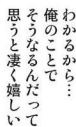 わかるから…
俺のことで
そうなるんだって
思うと凄く嬉しい